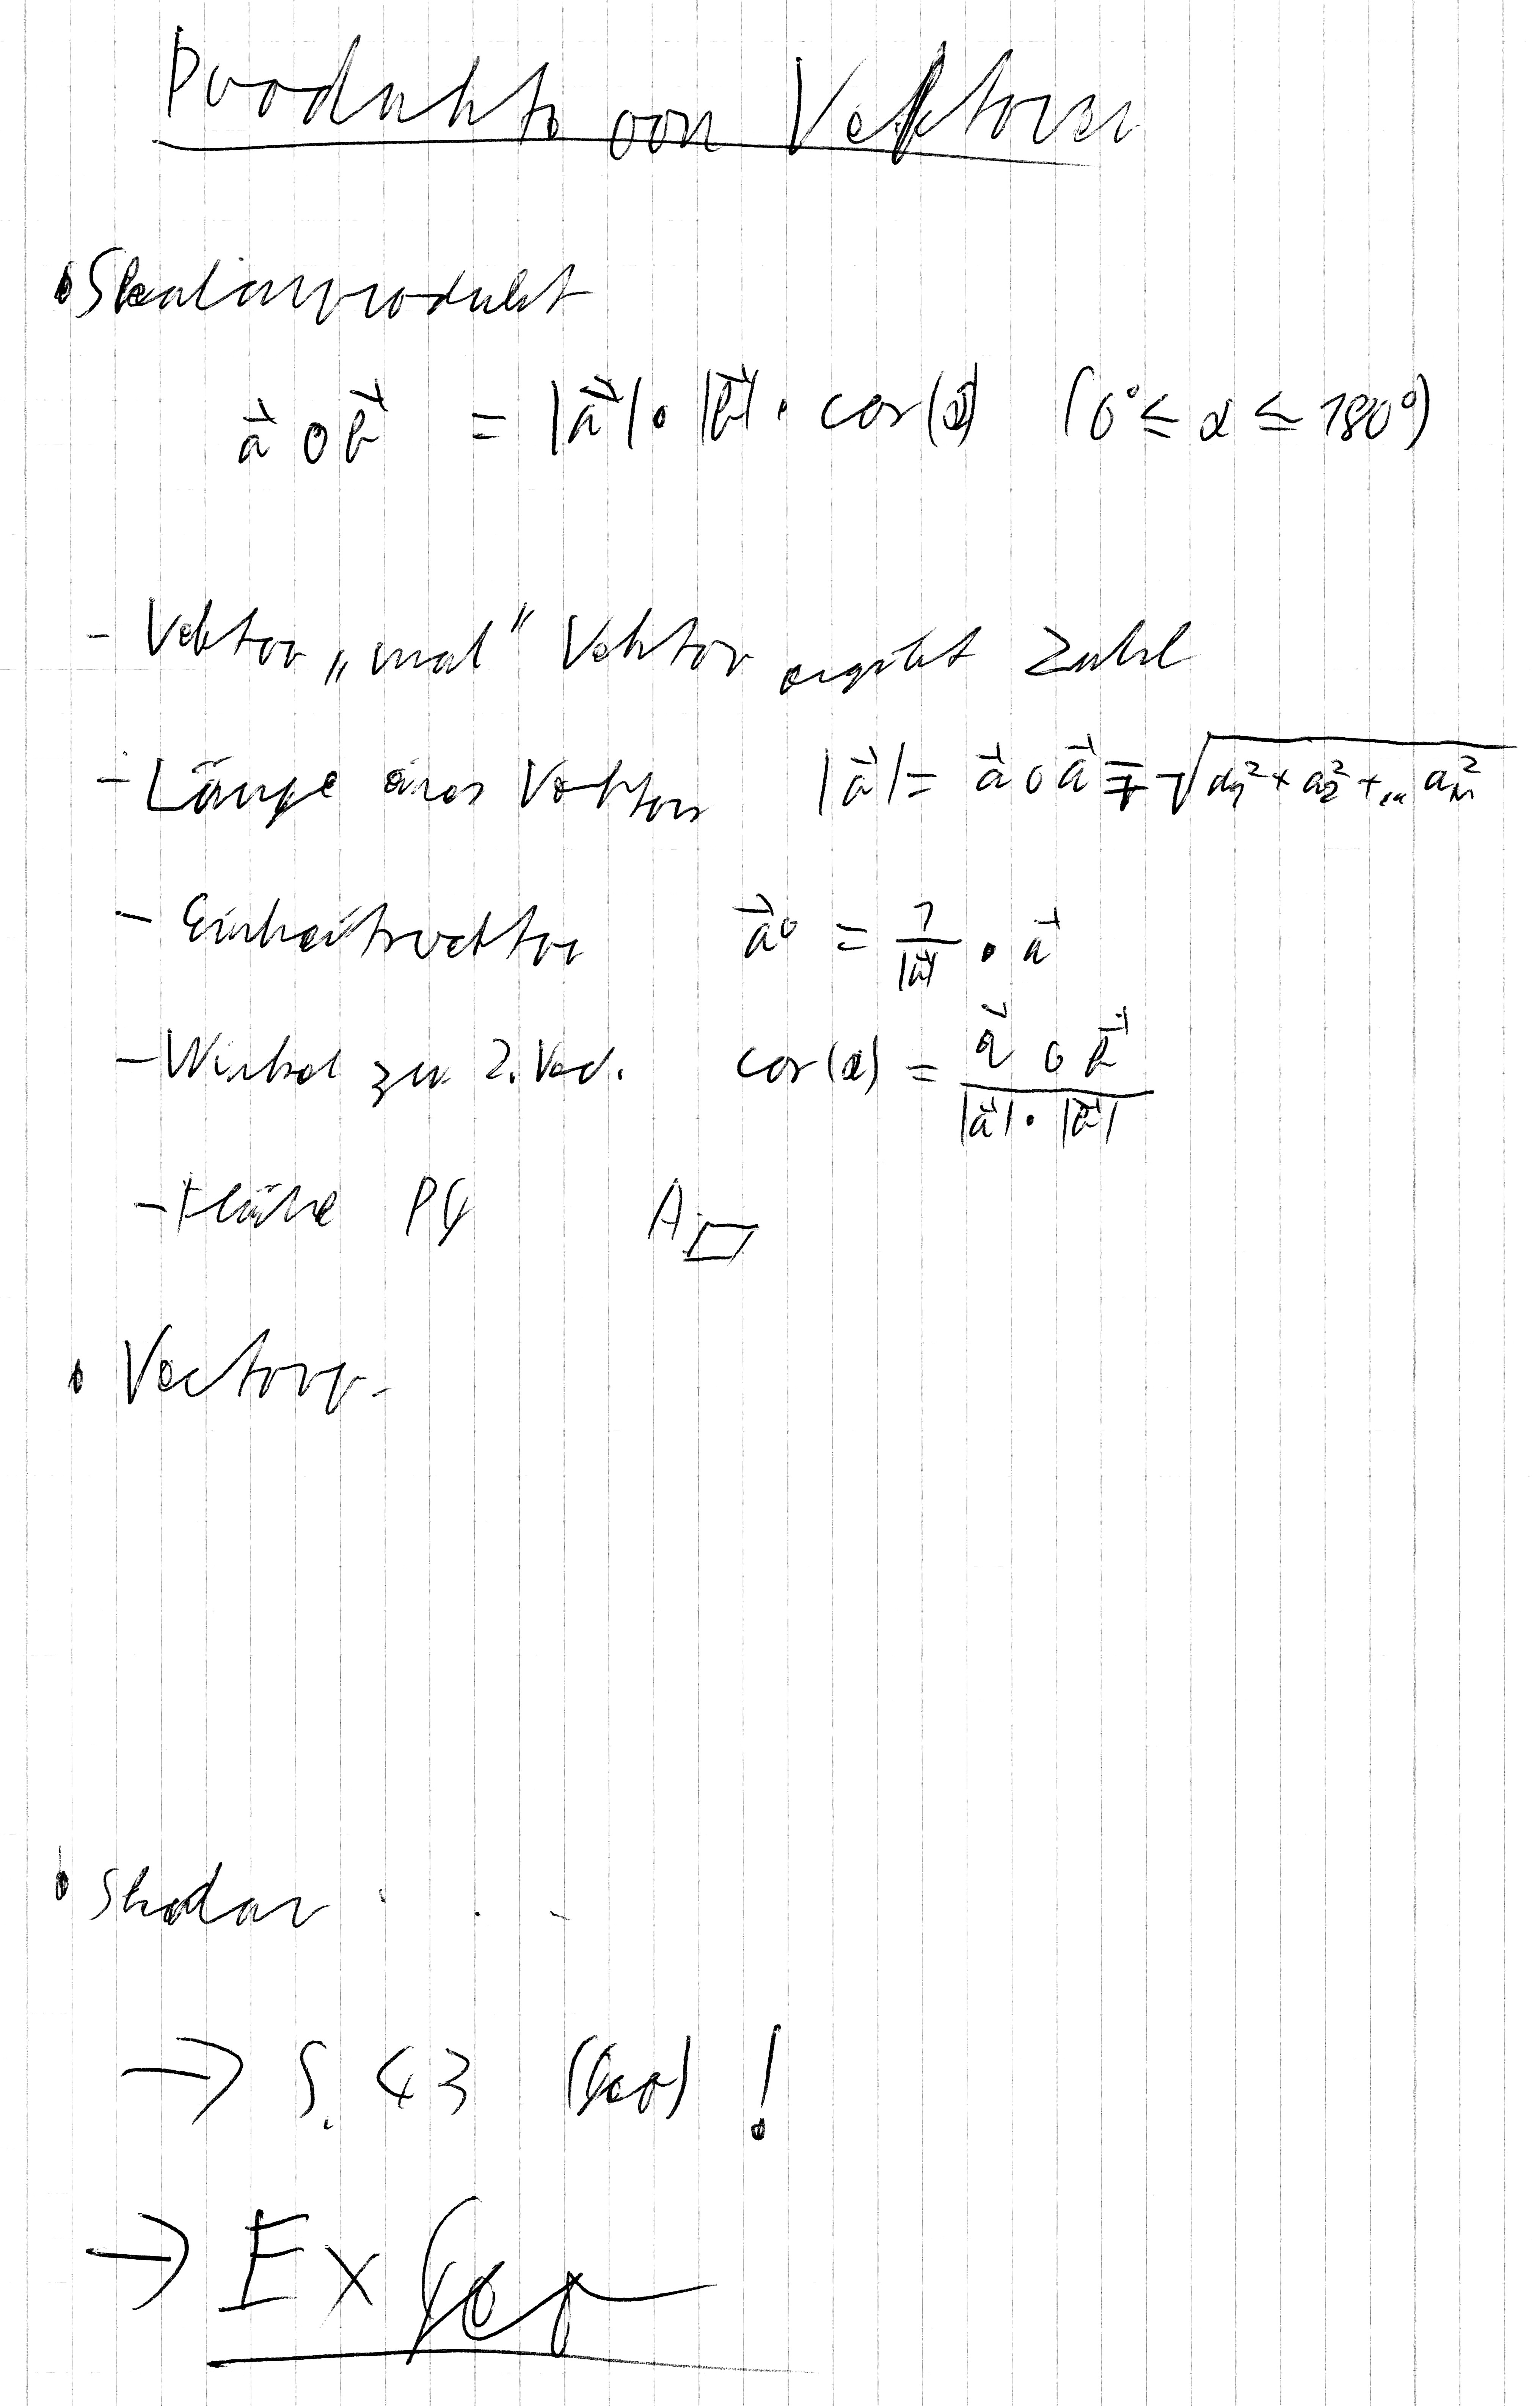 Produkte von Vektoren
• Skalarprodukt
a⃗ ∘ b⃗ = |a⃗| · |b⃗| · cos(α) (0° ≤ α ≤ 180°)
- Vektor „mal" Vektor ergibt Zahl
- Länge eines Vektors |a⃗| = a⃗ ∘ a⃗ = √(a₁² + a₂² + ... aₙ²)
- Einheitsvektor a⃗⁰ = 1/|a⃗| · a⃗
- Winkel zw. 2. Vec. cos(α) = (a⃗ ∘ b⃗)/(|a⃗| · |b⃗|)
- Fläche P4 A▱
• Vectorp.
• Skalar . . -
→ S. 43 (Geo) !
→ Ex Geo